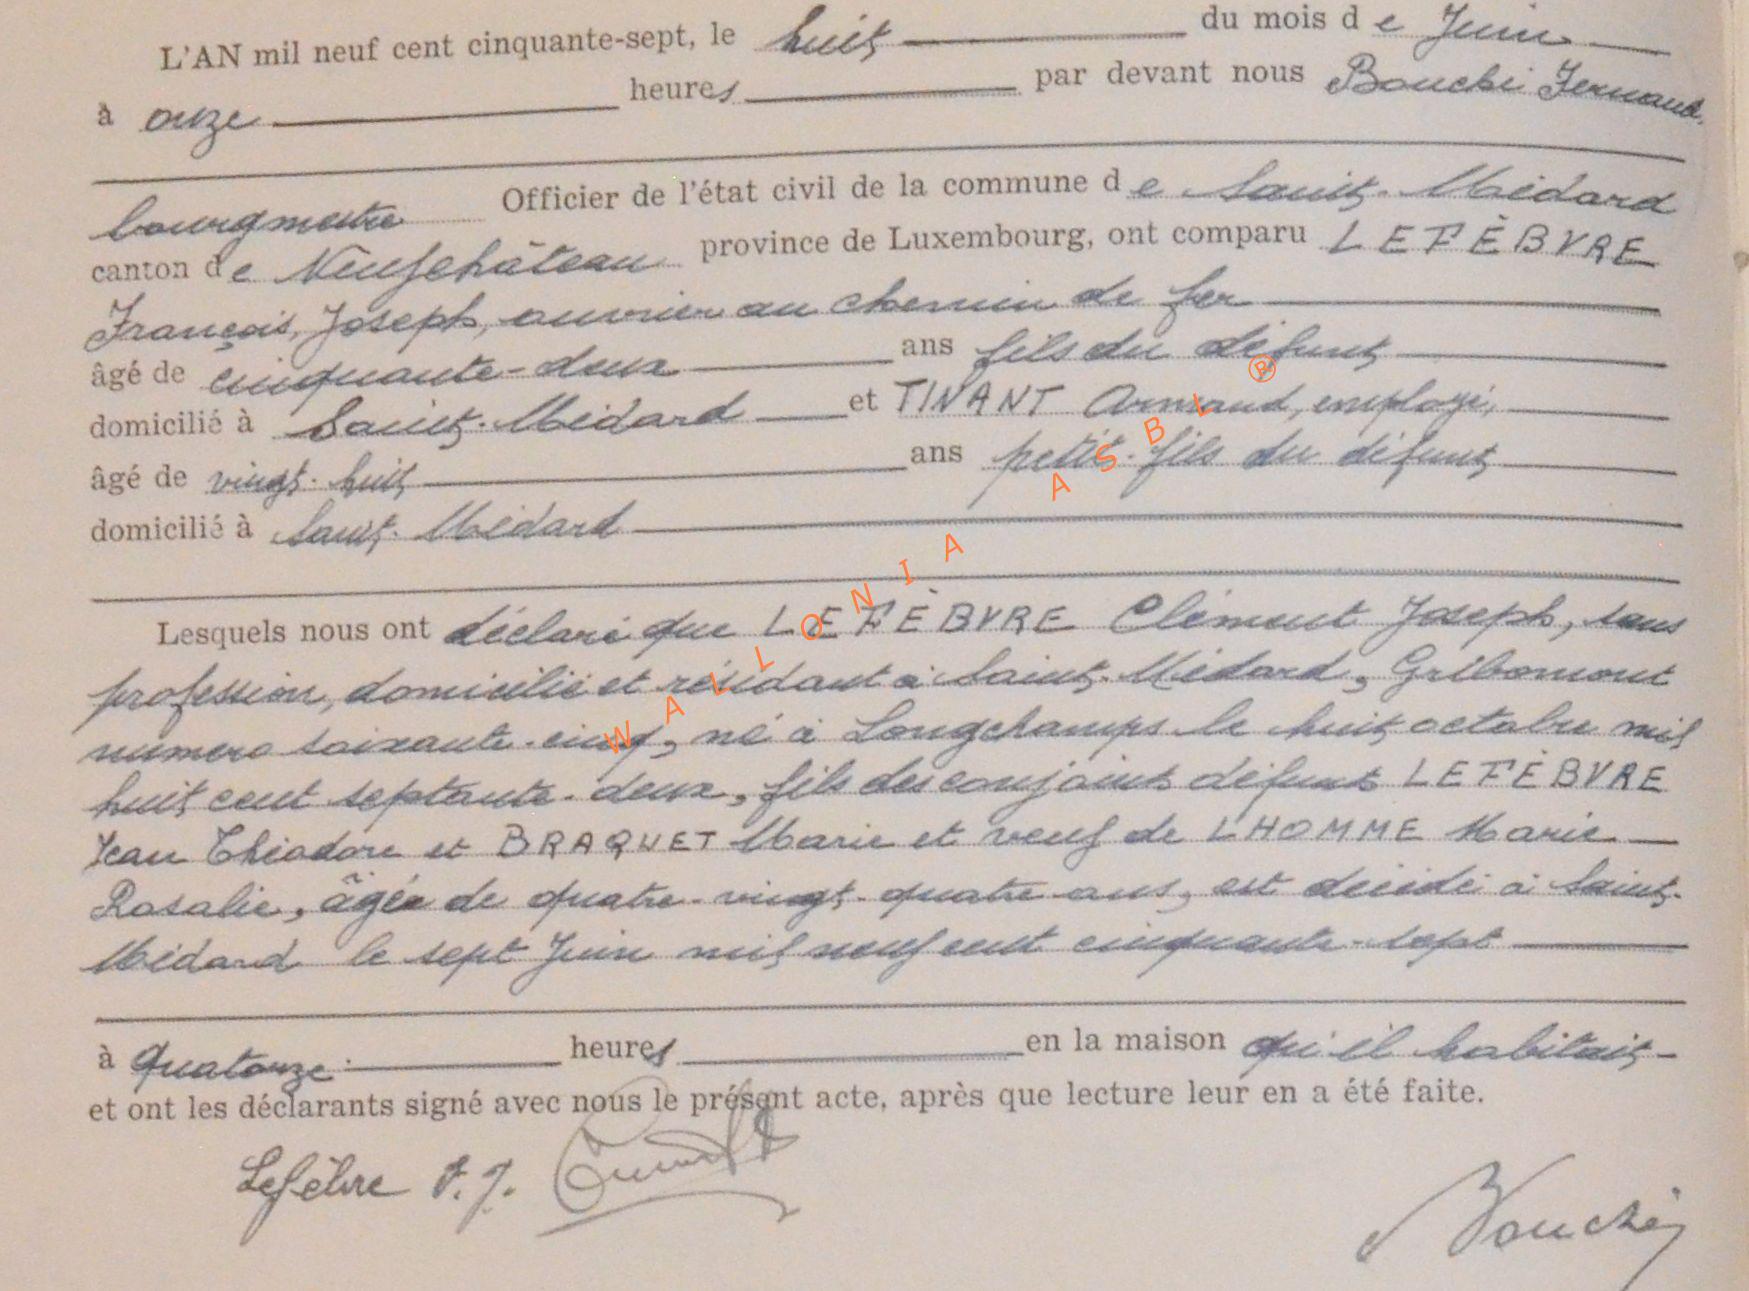 L'AN mil neuf cent cinquante-sept, le huit du mois de Juin
à onze heures par devant nous Bouché Fernand,
bourgmestre Officier de l'état civil de la commune de Saint-Médard
canton de Neufchâteau province de Luxembourg, ont comparu LEFÈBVRE
François, Joseph, ouvrier au chemin de fer
âgé de cinquante-deux ans fils du défunt
domicilié à Saint-Médard et TINANT Armand, employé,
âgé de vingt-huit ans petit-fils du défunt
domicilié à Saint-Médard
Lesquels nous ont déclaré que LEFÈBVRE Clément Joseph, sans
profession, domicilié et résidant à Saint-Médard, Gribomont
numéro soixante-cinq, né à Longchamps le huit octobre mil
huit cent septante-deux, fils des conjoints défunts LEFÈBVRE
Jean Théodore et BRAQUET Marie et veuf de LHOMME Marie
Rosalie, âgé de quatre-vingt-quatre ans, est décédé à Saint-
Médard le sept Juin mil neuf cent cinquante-sept
à quatorze heures en la maison qu'il habitait
et ont les déclarants signé avec nous le présent acte, après que lecture leur en a été faite.
Lefèbvre F. J.
Bouché
WALLONIA ASBL ®